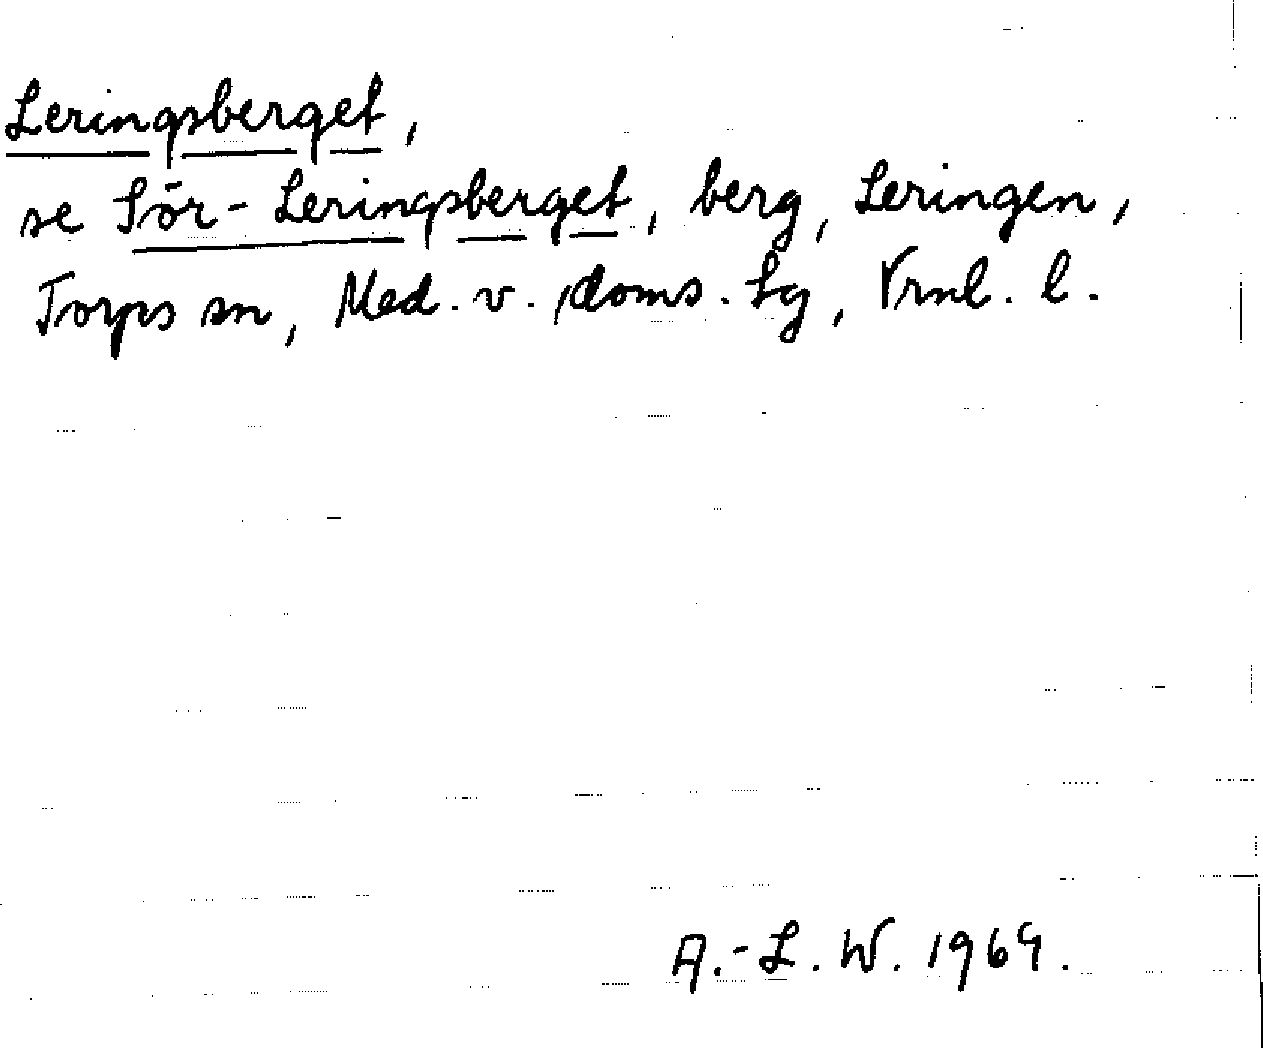 Leringsberget,
se Sör-Leringsberget, berg, Leringen,
Torps sn, Med. v. doms. tg, Vrnl. l.
A.-L. W. 1969.